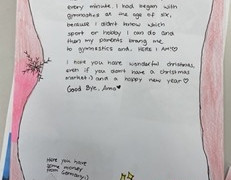 every minute. I had began with
gymnastics at the age of six,
because I didn't know which
sport or hobby I can do and
than my parents bring me
to gymnastics and, HERE I AM!♡
I hope you have wonderful christmas,
even if you don't have a christmas
market:) and a happy new year♡
Good Bye, Anna♥
Here you have
some money
from Germany:)